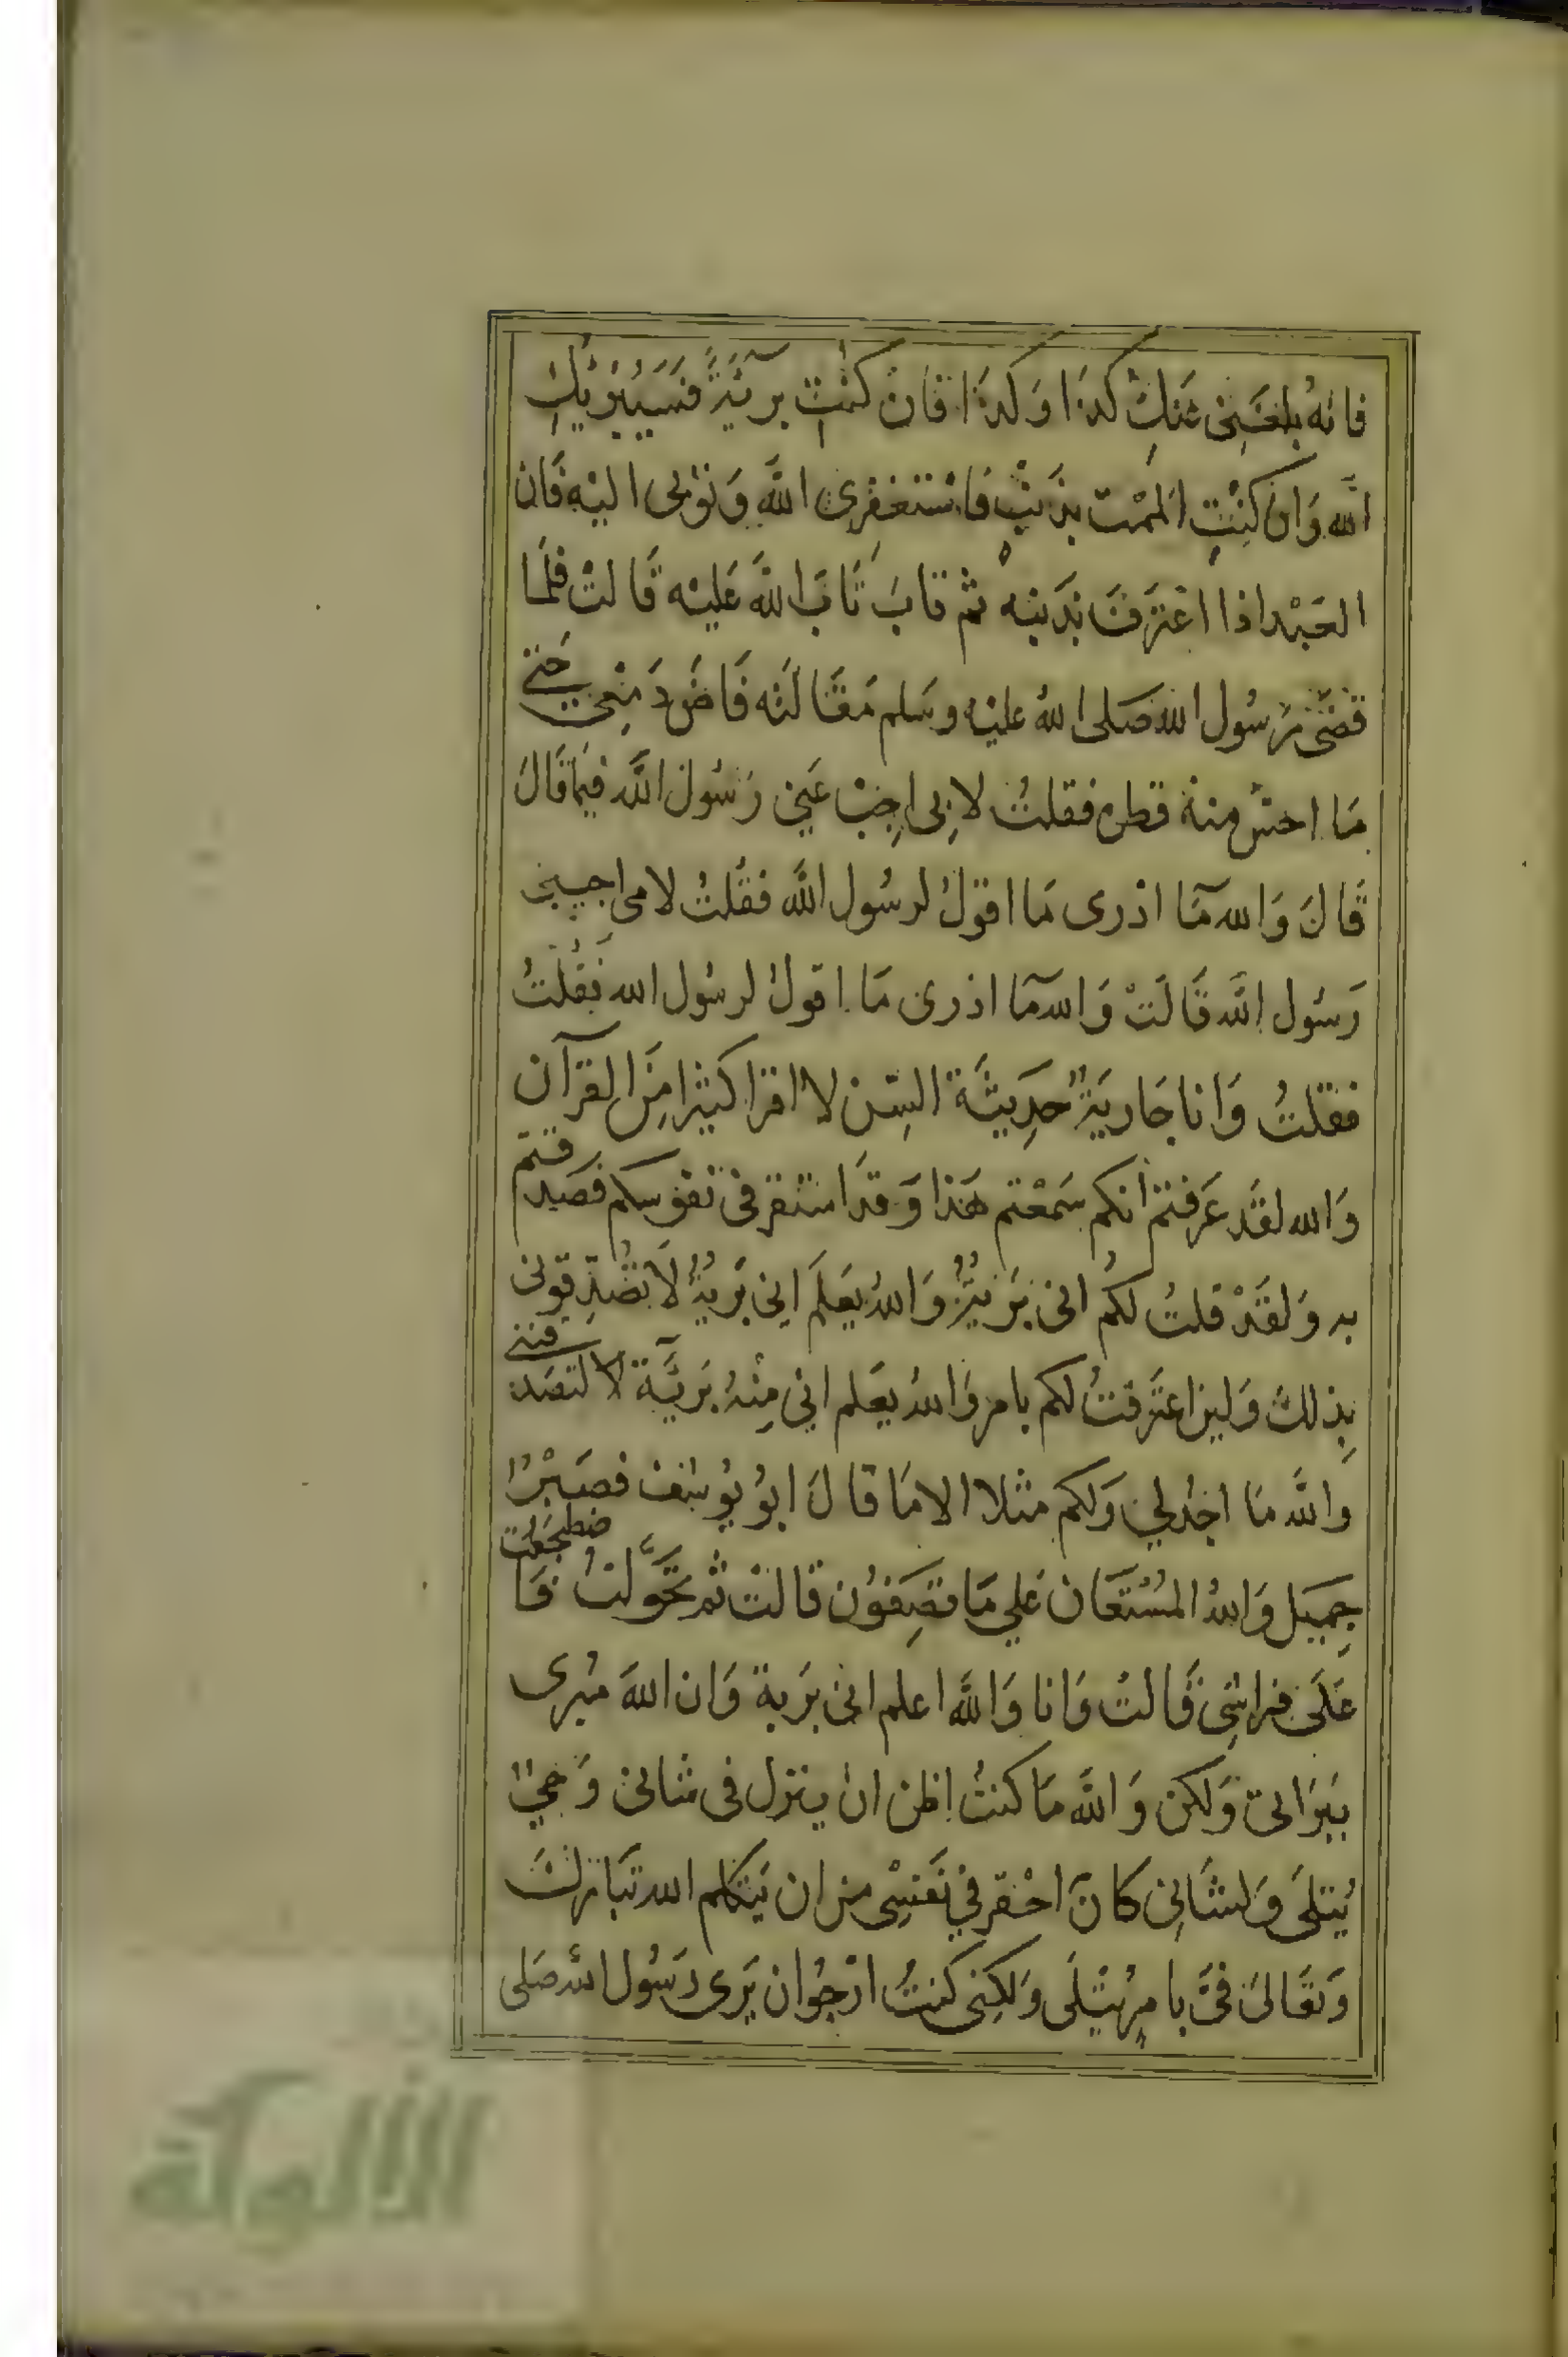 فانهُ بلغَنِى عَنكِ كذَا وَكذَا فان كنْتِ بريئةً فسَيُبَرّئكِ
اللّه وَان كنْتِ المَمْت بذنْبٍ فاسْتغفِرِى اللّه وَتوْبى اليْه فَان
العَبْد اذا اعْترَفَ بذنبه ثم تابَ تَابَ اللّه عَليْه قَالتْ فلَما
قضَى رَسُول اللّه صَلى اللّهُ عليْه وسَلم مَقَالَتَه فَاض دَمْعِى حَتى
مَا احسّ منهُ قطرة فقلتُ لابِى اجِبْ عَنِي رَسُول اللَّه فيمَا قَالَ
قَالَ وَاللّه مَآ ادْرى مَا اقولُ لرسُول اللَّه فقلتُ لامى اجيبِى
رَسُول اللّه قَالَتْ وَاللّه مآ ادرى مَا اقولُ لرسُول اللّه فَقُلتُ
فقلتُ وَانا جَاريَةٌ حَدِيثَة السِّن لا اقرا كثيرًا مِنَ القرآن
وَاللّه لقَد عَرفتم انكم سَمعْتم هَذا وَقد استقر فى نفوسكم فصَدقتم
به وَلقَدْ قلتُ لكُم انى بَريّةٌ وَاللّهُ يعَلَم اَنِي بَريةٌ لَا تُصَدِّقونى
بِذلكَ وَلين اعتَرفتُ لكم بامر وَاللّهُ يعَلم اني مِنْهُ بَريَّة لا لتصَدقننى
واللَّه مَا اجدُ لي وَلكم مثلا الا مَا قالَ ابوُ يوُسُف فصَبْرًا
جمِيَل وَاللّهُ المسُتَعَان عَلي مَا تصِفوُن قالتْ ثم تحَوَّلتُ فَاضطجَعْت
عَلَى فراشِى قَالتُ وَانا وَاللَّه اعلم انى بَرية وَان اللّهَ مُبرى
ببَرَاتى وَلكن وَ اللَّه مَا كنتُ اظن ان ينزل فى شانى وَحيًا
يُتلَى وَلشَانِى كَانَ احْقر في نَفسِى من ان يَتكلم اللّه تبَارَك
وَتعَالىَ فىَّ بامرٍ يُتْلَى وَلكِنى كنتُ ارْجُوا ن يَرى رَسُول اللّه صَلى
الألوكة